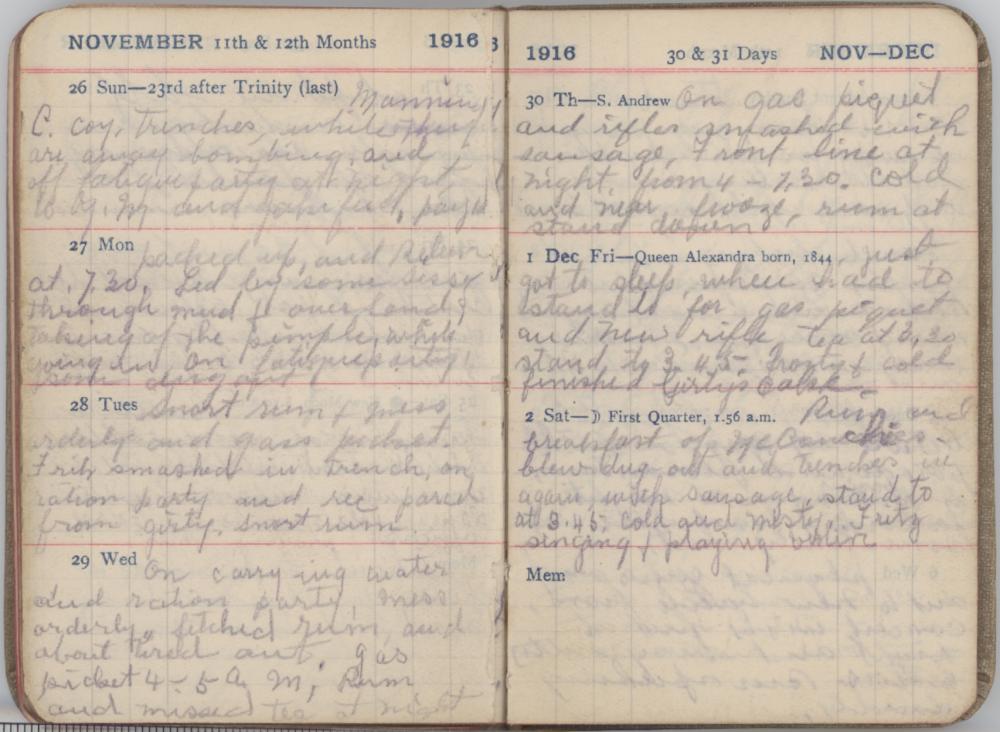 NOVEMBER 11th & 12th Months 1916
26 Sun—23rd after Trinity (last)
Manning
C. coy, trenches, while they
are away bombing, and
off fatigue party at night
and
27 Mon packed up, and
at 7.30. Led by some
through mud & over land,
taking of the pimple, while
going in, on fatigue party,
28 Tues Short rum & mess
orderly and gass picket.
Fritz smashed in trench, on
ration party and rec parcel
from girty. Short rum.
29 Wed On carrying water
and ration party, mess
orderly, fetched rum, and
about tired out. gas
picket 4 - 5 A, M, Rum
and missed tea at night
1916 30 & 31 Days NOV—DEC
30 Th—S. Andrew On gas piquet
and rifles smashed with
sausage, Front line at
night, from 4 - 7,30. Cold
and near frooze, rum at
stand down
1 Dec Fri—Queen Alexandra born, 1844, just
got to sleep, when had to
stand to for gas piquet
and new rifle tea at 2,30
stand to 3.45. Frosty & cold
finished Girtys cake.
2 Sat—☽ First Quarter, 1.56 a.m. Rum and
breakfast of McConchies.
blew dug out and trenches in
again with sausage, stand to
at 3.45, cold and misty, Fritz
singing & playing violin
Mem